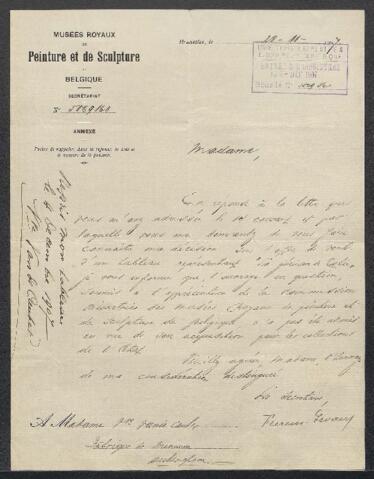 MUSÉES ROYAUX
DE
Peinture et de Sculpture
DE
BELGIQUE
SECRÉTARIAT
No 5189/60
ANNEXE
Prière de rappeler, dans la réponse, la date et
le numéro de la présente.
Bruxelles, le 28-11- 1907
Madame,
En réponse à la lettre que
vous m'avez adressée le courant et par
laquelle vous me demandez de vous faire
connaître ma décision sur l'offre de vente
d'un tableau représentant
je vous informe que l'ouvrage en question
soumis à l'appréciation de la Commission
directrice des Musées Royaux de peinture et
de sculpture de Belgique n'a pas été admis
en vue de son acquisition pour les collections
de l'État.
Veuillez agréer, Madame, l'assurance
de ma considération distinguée.
Le Secrétaire,
Fierens-Gevaert
A Madame
Repris mon tableau
le 4 décembre 1907